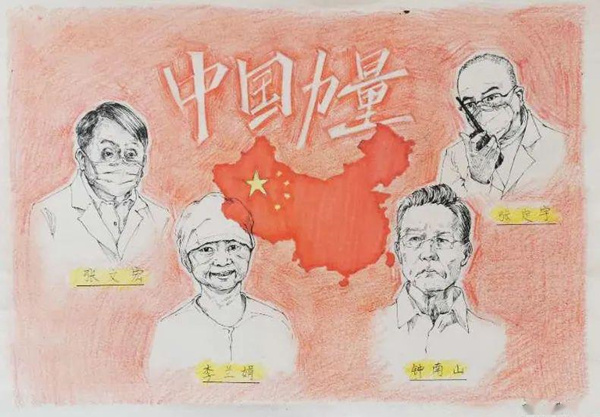 中国力量
张定宇
张文宏
李兰娟
钟南山